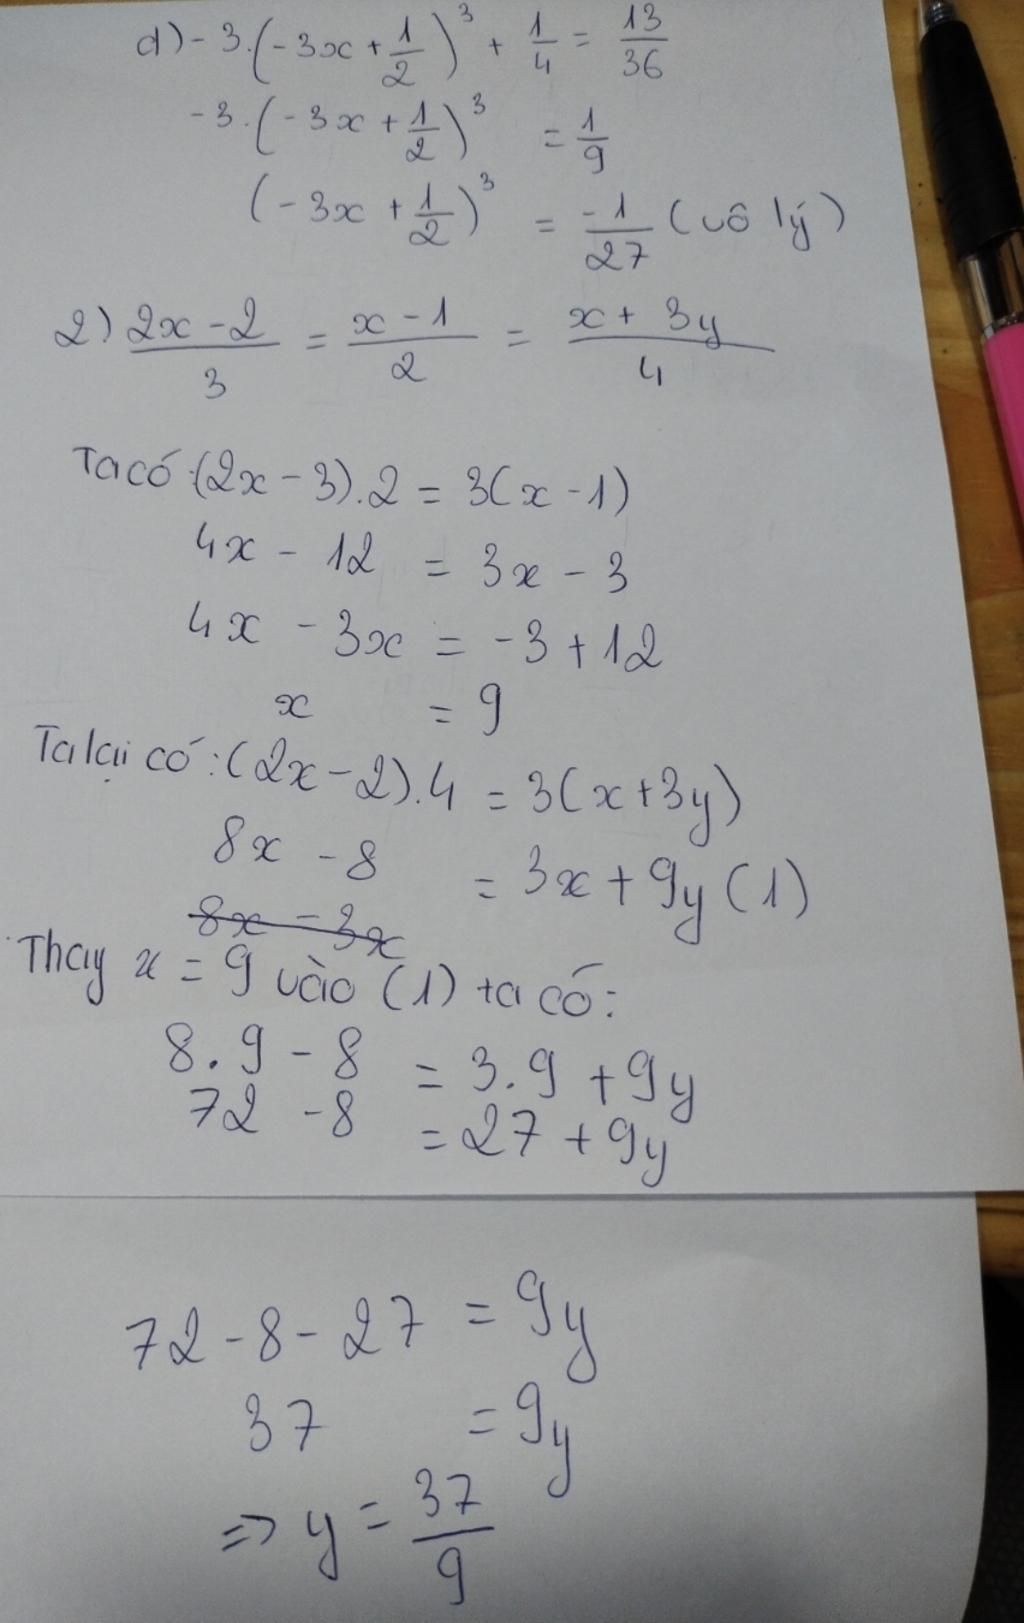 d) - 3.(-3x + 1/2)³ + 1/4 = 13/36
-3.(-3x + 1/2)³ = 1/9
(-3x + 1/2)³ = -1/27 (vô lý)
2) 2x - 2/3 = x - 1/2 = x + 3y/4
Ta có: (2x - 3).2 = 3(x - 1)
4x - 12 = 3x - 3
4x - 3x = -3 + 12
x = 9
Ta lại có: (2x - 2).4 = 3(x + 3y)
8x - 8 = 3x + 9y (1)
8x - 3x
Thay x = 9 vào (1) ta có:
8.9 - 8 = 3.9 + 9y
72 - 8 = 27 + 9y
72 - 8 - 27 = 9y
37 = 9y
=> y = 37/9